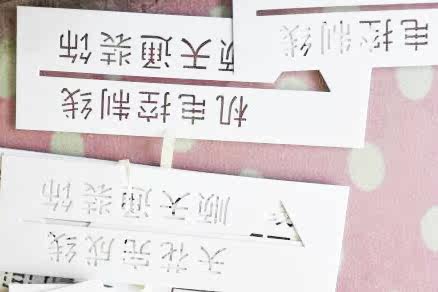 天花完成线
顺天通装饰
机电控制线
顺天通装饰
电控制线